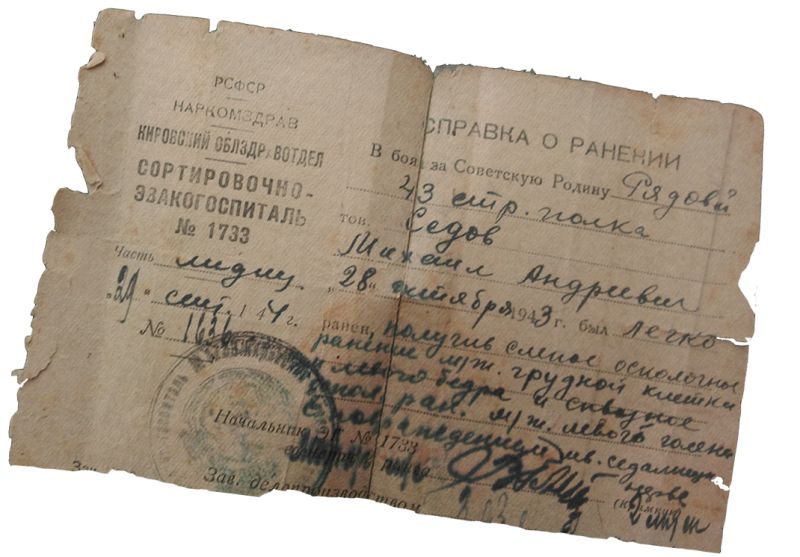 РСФСР
НАРКОМЗДРАВ
КИРОВСКИЙ ОБЛЗДРАВОТДЕЛ
СОРТИРОВОЧНО-
ЭВАКОГОСПИТАЛЬ
№ 1733
Часть
"29" сент. 1944 г.
№ 1636
СПРАВКА О РАНЕНИИ
В боях за Советскую Родину Рядовой
43 стр. полка
тов. Седов
Михаил Андреевич
"28" октября 1943 г. был легко
ранен, получив слепое осколочный
ранение м/ж. грудной клетки
и левого бедра и сквозное
оскол ран. м/ж. левого голени
с повреждением лев. седалищн
Начальник ЭГ № 1733
нерве
Зав. делопроизводством